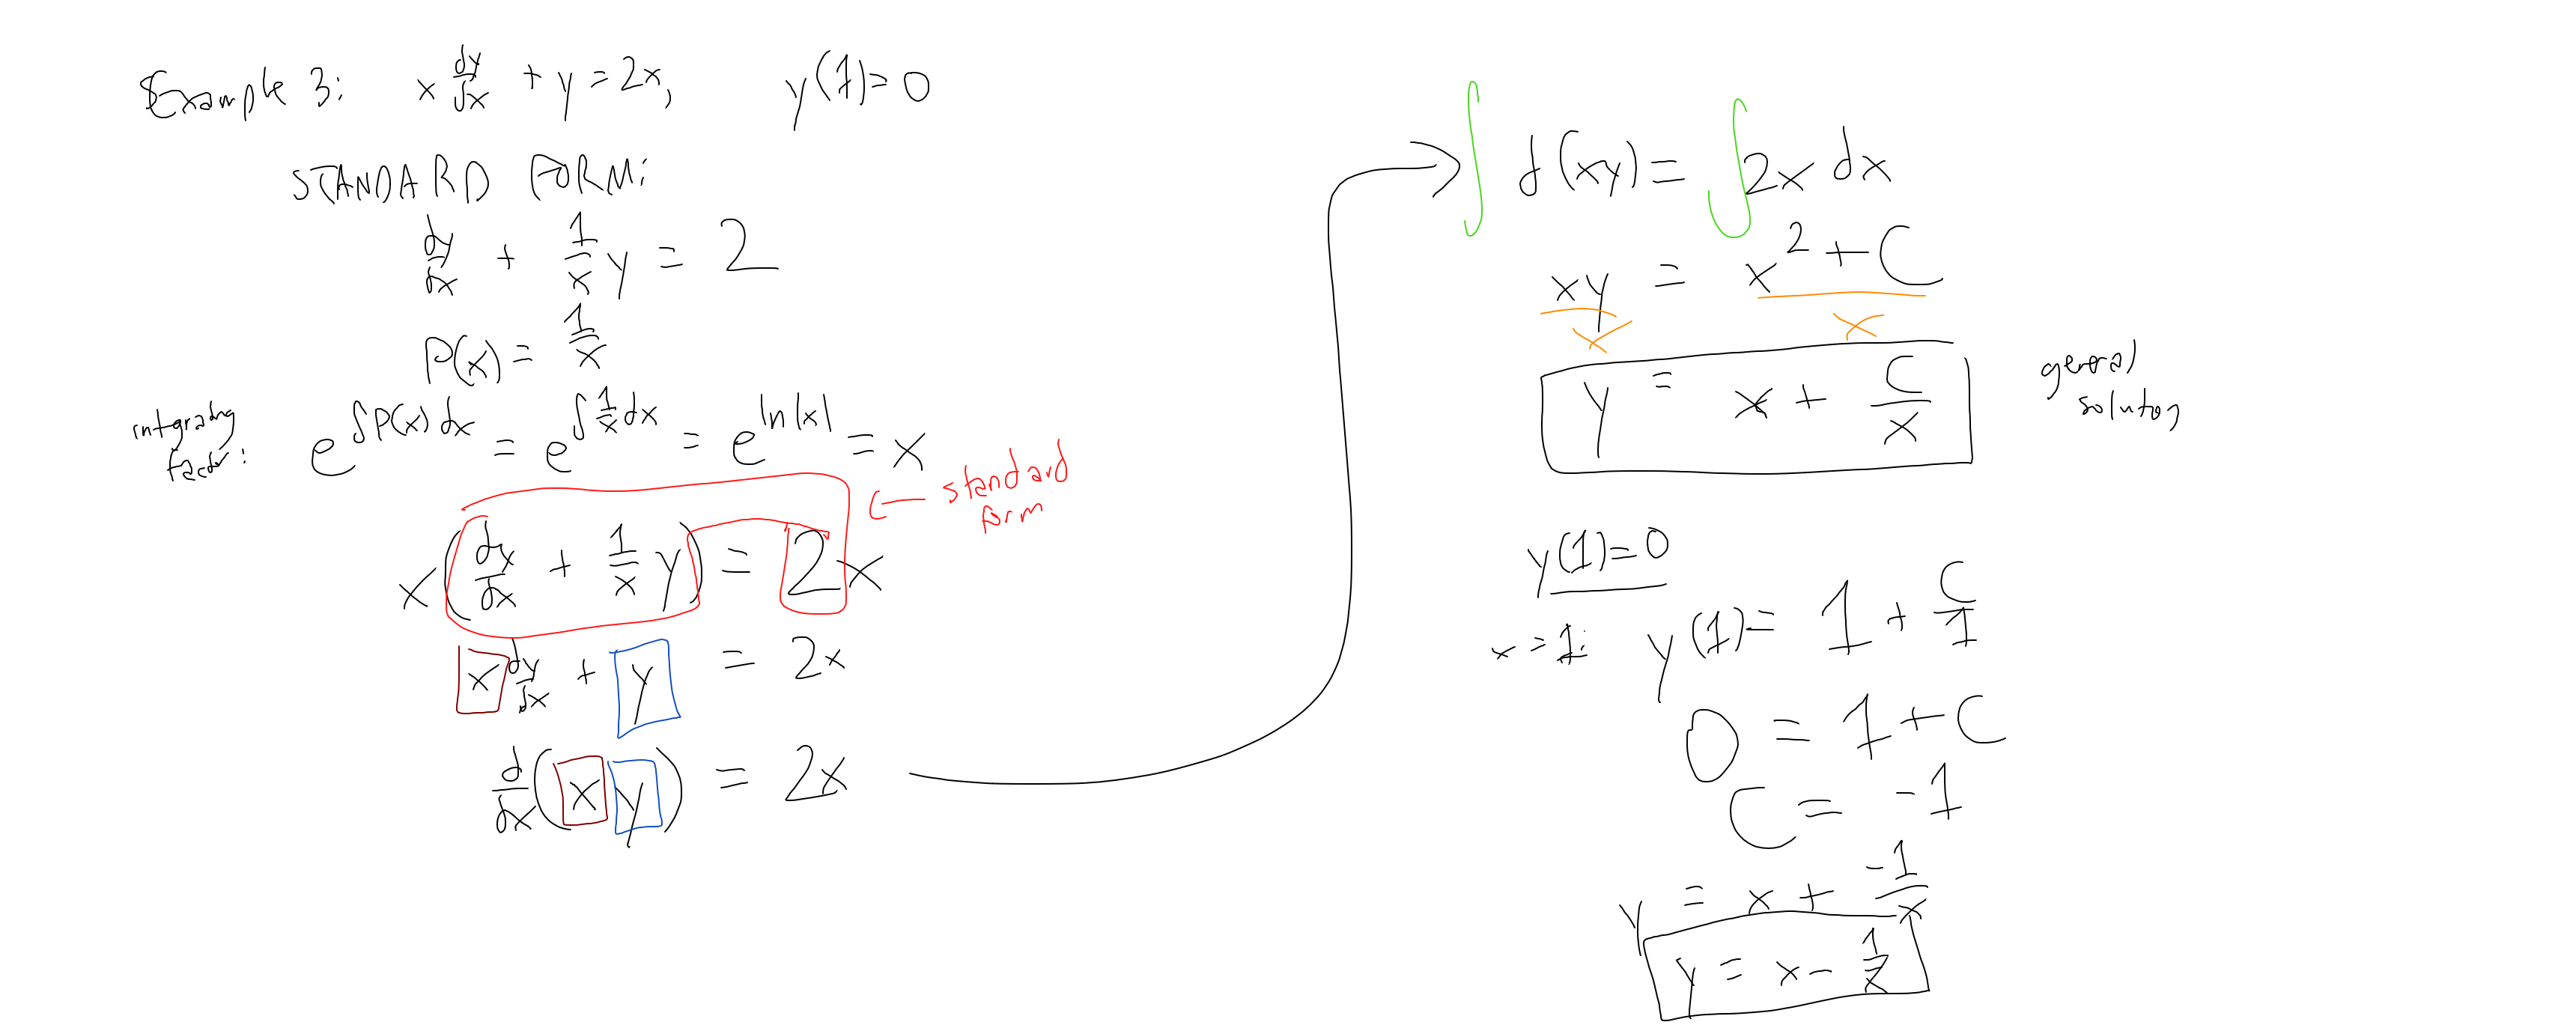 Example 3: x dy/dx + y = 2x, y(1) = 0
STANDARD FORM:
dy/dx + 1/x y = 2
P(x) = 1/x
integrating factor: e^∫P(x)dx = e^∫1/x dx = e^ln|x| = x
x(dy/dx + 1/x y) = 2x ← standard form
x dy/dx + y = 2x
d/dx(xy) = 2x
∫ d(xy) = ∫ 2x dx
xy = x^2 + C
x x
y = x + C/x general solution
y(1) = 0
x = 1: y(1) = 1 + C/1
0 = 1 + C
C = -1
y = x + -1/x
y = x - 1/x